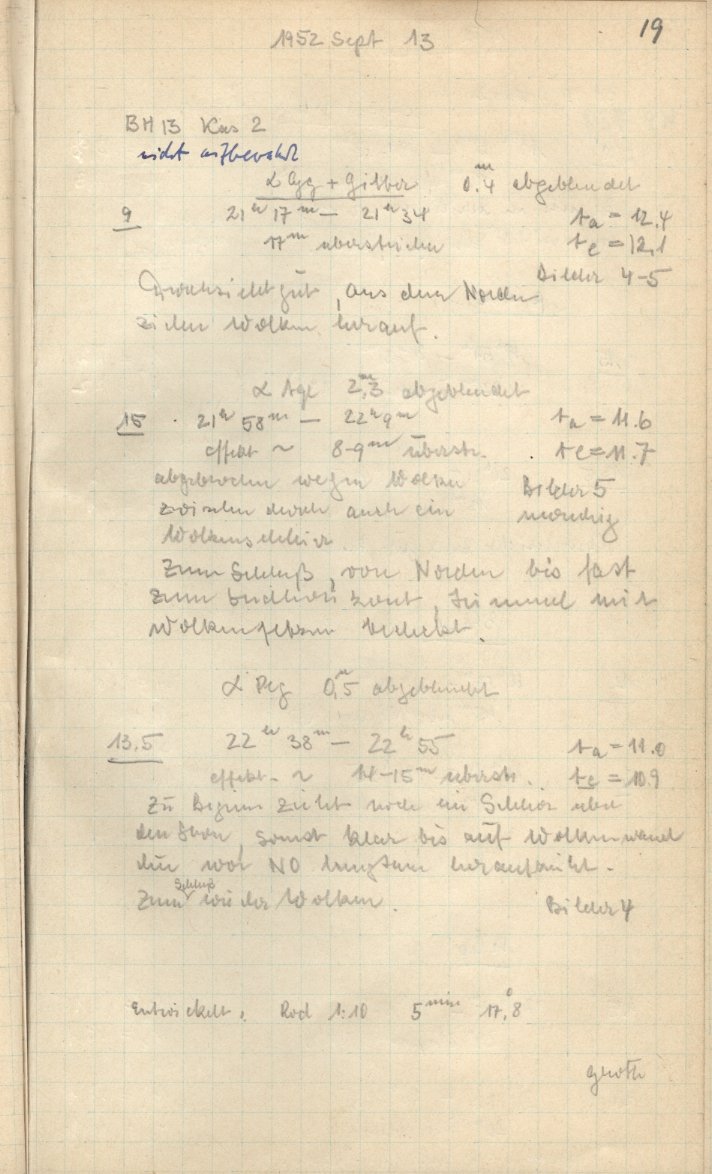 19
1952 Sept 13
BH 13 Kas 2
nicht aufbewahrt
α Cyg + Gitter 0,4ᵐ abgeblendet
9 21ʰ 17ᵐ — 21ʰ 34 tₐ = 12.4
17ᵐ überstrichen tₑ = 12,1
Bilder 4-5
Durchsicht gut, aus dem Norden
ziehen Wolken herauf.
α Aql 2,3ᵐ abgeblendet
15 21ʰ 58ᵐ — 22ʰ 9ᵐ tₐ = 11.6
effekt ~ 8-9ᵐ überstr. tₑ = 11.7
abgebrochen wegen Wolken Bilder 5
zwischen durch auch ein unruhig
Wolkenschleier
Zum Schluß, von Norden bis fast
zum Südhorizont, Himmel mit
Wolkenfetzen bedeckt.
α Peg 0,5ᵐ abgeblendet
13.5 22ʰ 38ᵐ — 22ʰ 55 tₐ = 11.0
effekt. ~ 14-15ᵐ überstr. tₑ = 10.9
Zu Beginn zieht noch ein Schleier über
den Stern, sonst klar bis auf Wolkenwand
die von NO langsam heraufzieht.
Zum Schluß wieder Wolken. Bilder 4
Entwickelt: Rod 1:10 5 min 17,8°
Groth